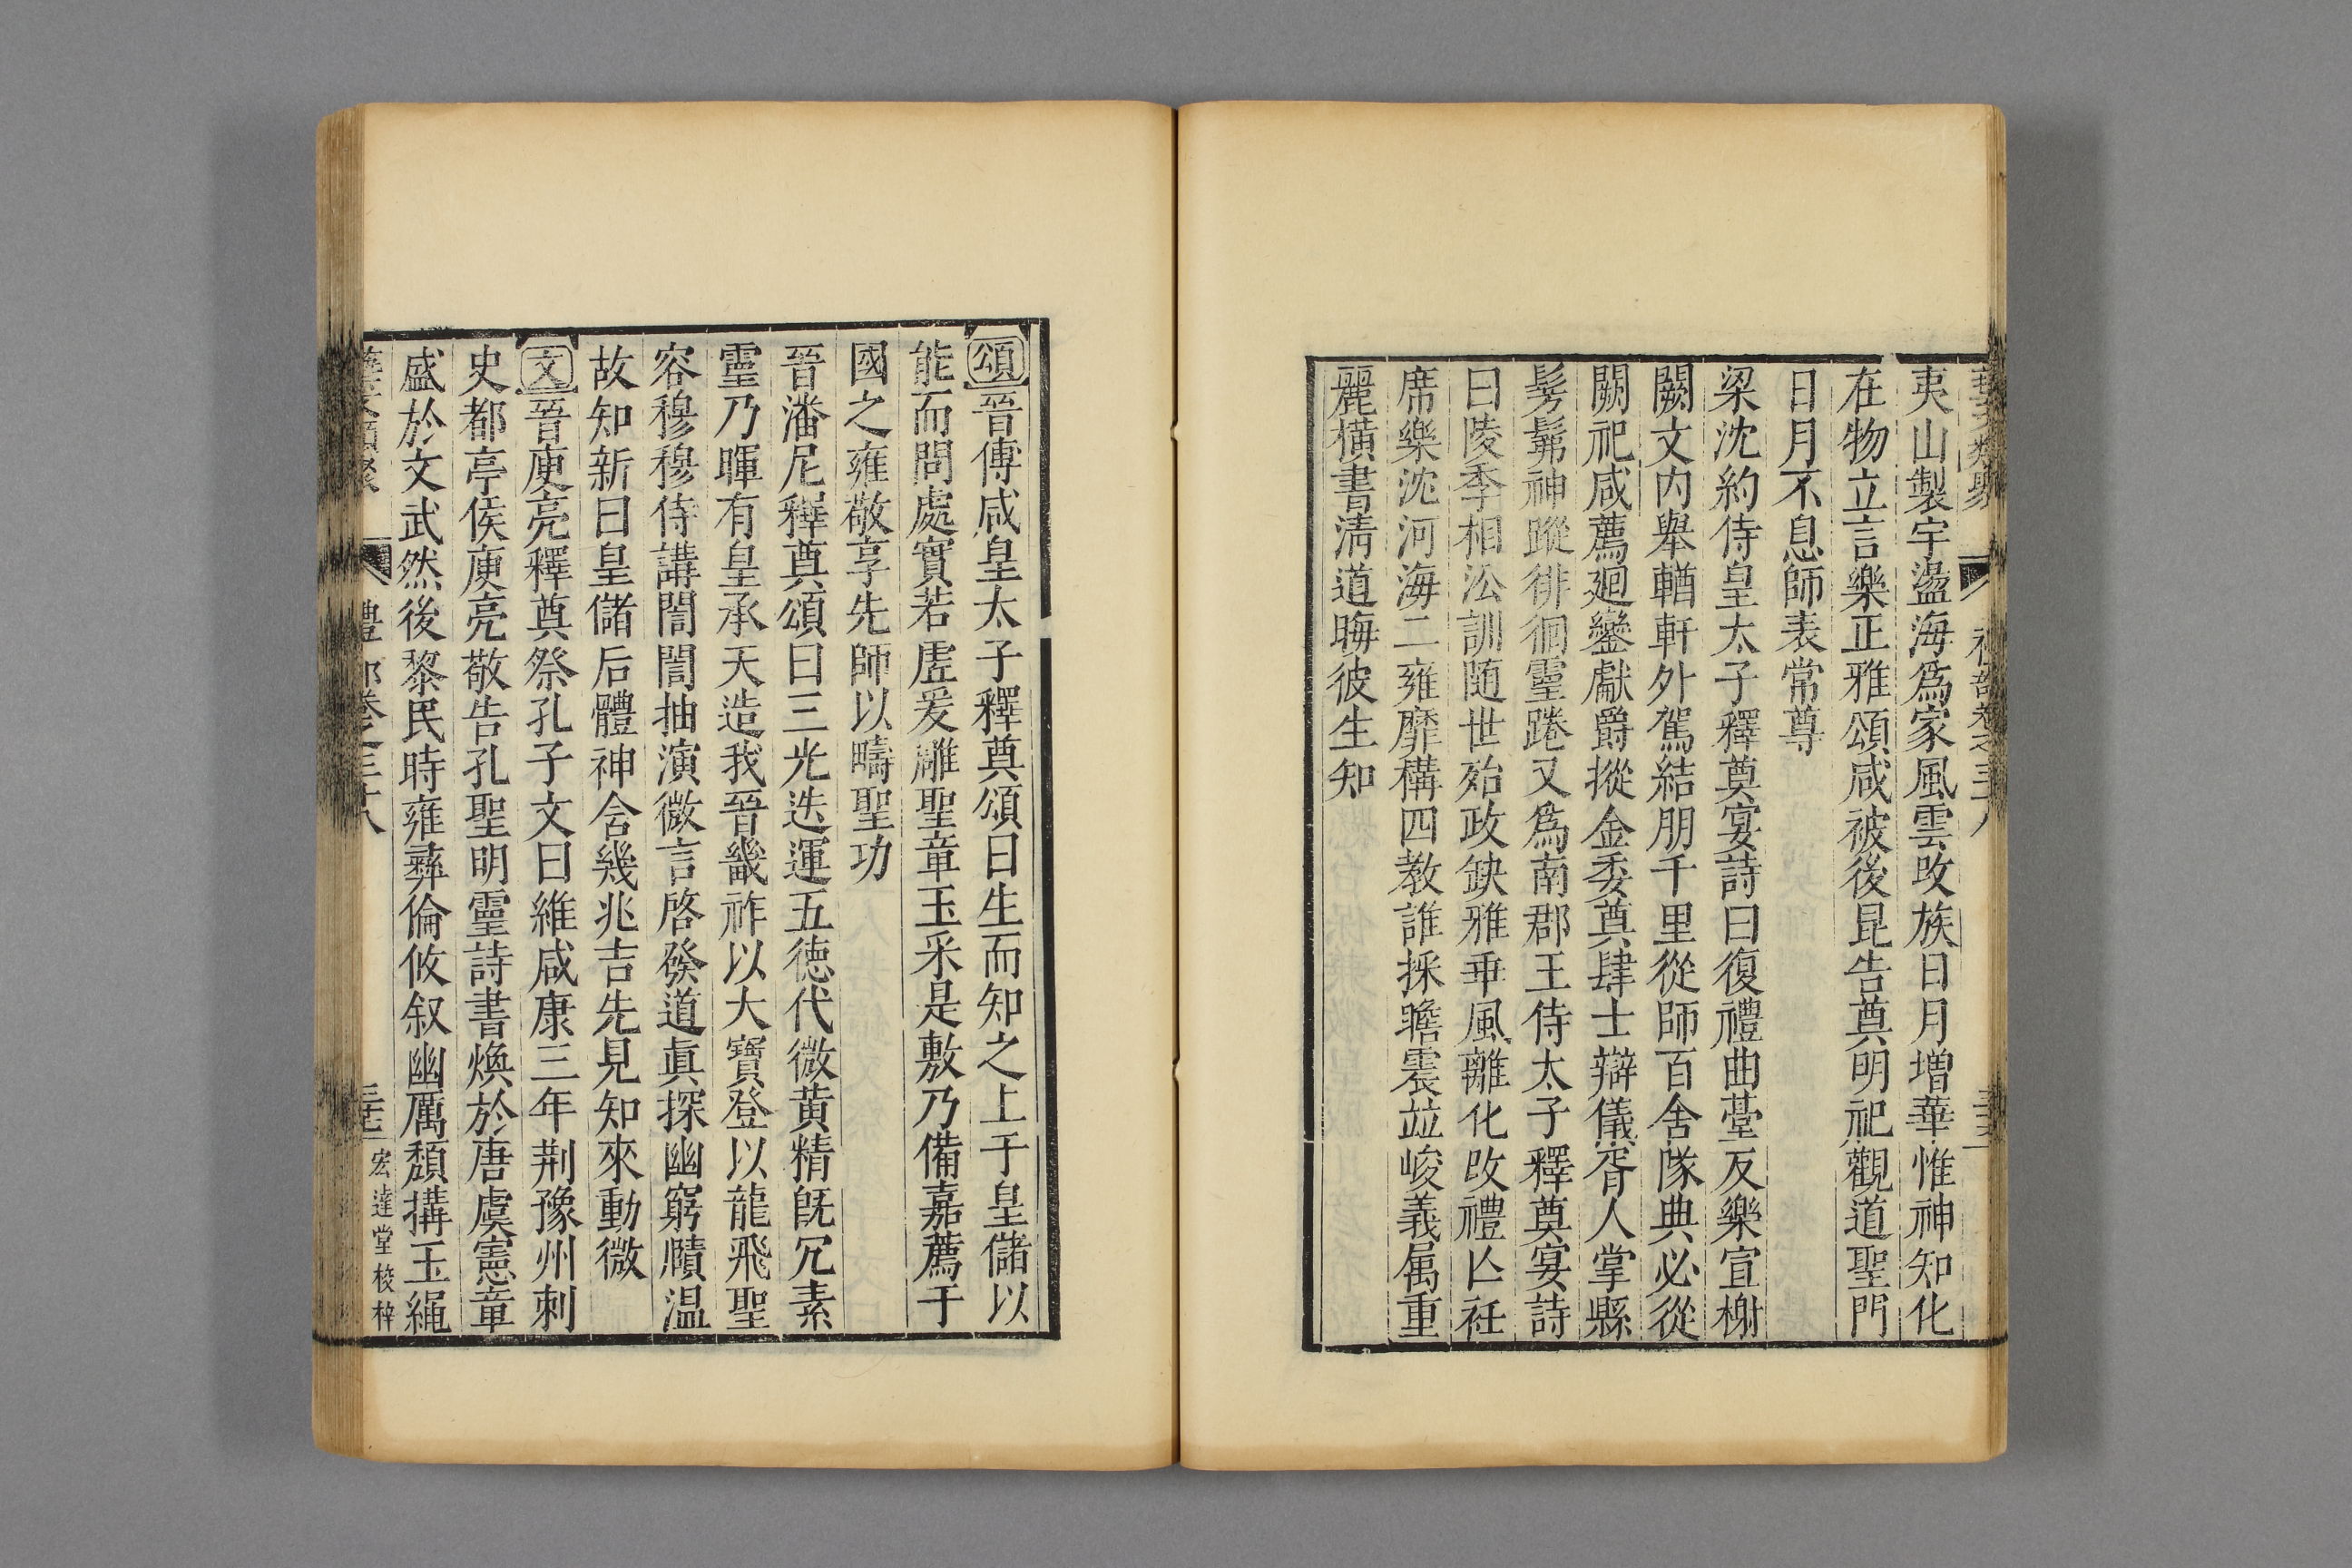 夷山製宇盪海爲家風雲攺族日月增華惟神知化
在物立言樂正雅頌咸被後昆告奠明祀觀道聖門
日月不息師表常尊
梁沈約侍皇太子釋奠宴詩曰復禮曲臺反樂宣榭
闕文内舉輶軒外駕結朋千里從師百舍隊典必從
闕祀咸薦迴鑾獻爵摐金委奠肆士辯儀胥人掌縣
髣髴神蹤徘徊靈踡又爲南郡王侍太子釋奠宴詩
曰陵季相沿訓随世殆政缺雅乖風離化改禮亾祍
席樂沈河海二雍靡構四教誰採瞻震並峻義属重
麗橫書清道晦彼生知
頌晉傅咸皇太子釋奠頌曰生而知之上于皇儲以
能而問處實若虗爰雕聖章玉采是敷乃備嘉薦于
國之雍敬享先師以疇聖功
晉潘尼釋奠頌曰三光迭運五徳代微黄精旣冗素
靈乃暉有皇承天造我晉畿祚以大寶登以龍飛聖
容穆穆侍講誾誾抽演微言啓發道眞探幽窮賾温
故知新曰皇儲后體神合幾兆吉先見知來動微
文晉庾亮釋奠祭孔子文曰維咸康三年荆豫州刺
史都亭侯庾亮敬告孔聖明靈詩書煥於唐虞憲章
盛於文武然後黎民時雍彝倫攸叙幽厲頽搆玉繩
藝文類聚 禮部卷之三十八 宏達堂校梓